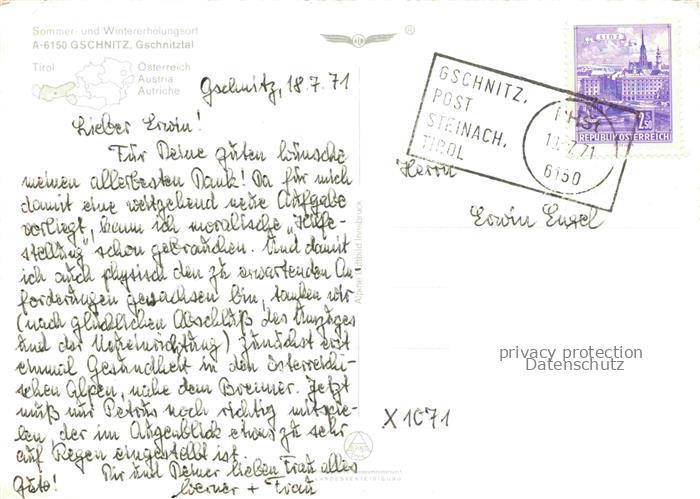 Sommer- und Wintererholungsort
A-6150 GSCHNITZ, Gschnitztal
Tirol
Österreich
Austria
Autriche
Gschnitz, 18.7.71
Lieber Erwin!
Für Deine guten Wünsche
meinen allerbesten Dank! Da für mich
damit eine weitgehend neue Aufgabe
vorliegt, kann ich moralische „Hilfe-
stellung" schon gebrauchen. Und damit
ich auch physisch den zu erwartenden An-
forderungen gewachsen bin, tanken wir
(nach glücklichen Abschluß des Umzuges
und der Neueinrichtung) zunächst erst
einmal Gesundheit in den österreichi-
schen Alpen, nahe dem Brenner. Jetzt
muß nur Petrus noch richtig mitspie-
len, der im Augenblick etwas zu sehr
auf Regen eingestellt ist.
Dir und Deiner lieben Frau alles
Gute! Werner + Frau
GSCHNITZ,
POST
STEINACH,
TIROL
18.7.71
6150
LINZ
2.50
REPUBLIK ÖSTERREICH
Herrn
Erwin Engel
Alpine Luftbild Innsbruck
privacy protection
Datenschutz
X1071
LANDESVERTEIDIGUNG